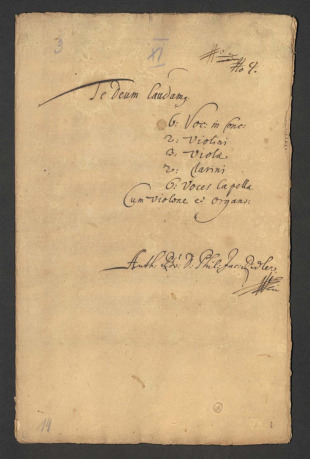 3
XI
No 4.
Te Deum Laudam9
6: Voc: in Conc:
2: Violini
3. Viola
2: Clarini
6: Voces Capella
Cum Violone et Organo:
Auth: D: Phil: Jac:
14